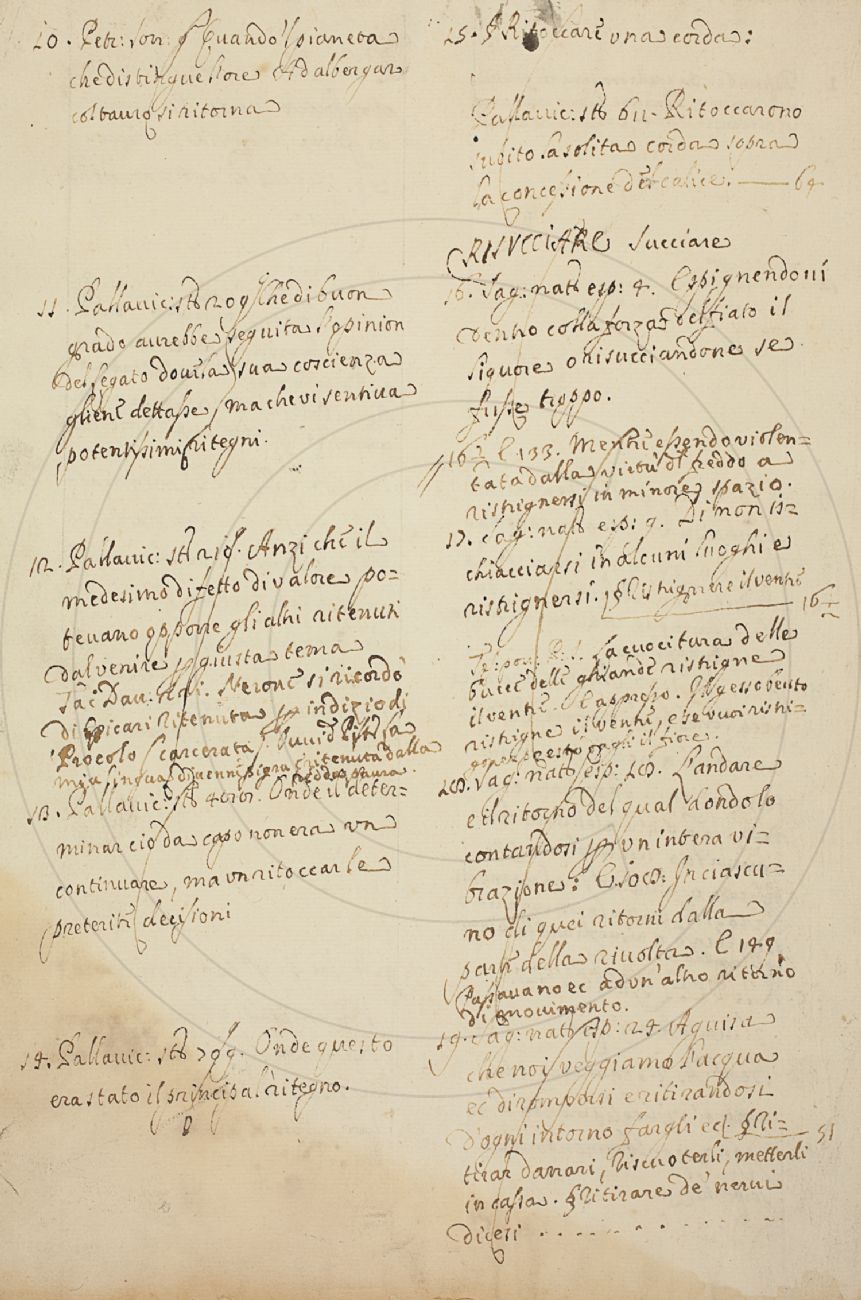 10. Petr: son: 9 Quando'l pianeta
che distingue l'ore Ad albergar
col tauro si ritorna
11. Pallavic: stō 209 Che di buon
grado avrebbe seguita l'opinion
del legato dov'la sua coscienza
glienē dettasse, ma che vi sentiva
potentissimi ritegni.
12. Pallavic: stō Anzi chē il
medesimo difetto di valore po=
tevano opporre gli altri ritenuti
dal venire p giusta tema
Tac: Dav: Nerone si ricordò
di Epicari ritenuta p indizio di
Procolo scarcerata.
mia lingua ritenuta dalla
paura.
13. Pallavic: stō Onde il deter=
minar ciò da capo non era un
continuare, ma un ritoccar le
preteritē decisioni
14. Pallavic: stō Onde questo
era stato il principal ritegno.
15. § Ritoccarē una corda:
Pallavic: stō 611. Ritoccarono
subito la solita corda sopra
la concessione del calice. — 64
RISUCCIARE Succiare
16. Sag: natō esp: 4. E spignendovi
dentro colla forza del fiato il
liquore o risucciandone se
fusse troppo.
16 1/2 E 133. Mentrē essendo violen=
tata dalla virtù del freddo a
ristrignersi in minore spazio.
17. Sag: natō esp: 9. Di non is=
chiacciarsi in alcuni luoghi e
ristrignersi. § Ristrignere il ventrē 16 1/2
La cuocitura delle
bucce delle ghiandē ristrigne
il ventrē. E appresso. Il gesso bevuto
ristrigne il ventrē, e se vuoi ristri=
gnere pesto togli il fiore.
18. Sag: natō esp: L'andare
e il ritorno del qual dondolo
contandosi p un intera vi=
brazione: In ciascu=
no di quei ritorni dalla
partē della rivolta. E 149.
Passavano ec ad un'altro ritorno
di movimento.
19. Sag: natō esp: 24 A guisa
che noi veggiamo l'acqua
ec dirompersi e ritirandosi
d'ogni intorno fargli ec. § Ri=
tirar danari, Riscuoterli, metterli 51
in cassa. § Ritirare de' nervi
dicesi . . . . . . . . .